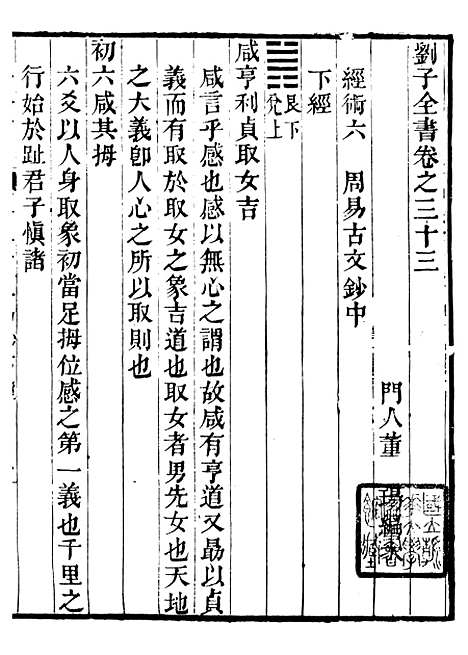 劉子全書卷之三十三
門人董
瑒編次
經術六　周易古文鈔中
下經
艮下
兌上
咸亨利貞取女吉
咸言乎感也感以無心之謂也故咸有亨道又勗以貞
義而有取於取女之象吉道也取女者男先女也天地
之大義卽人心之所以取則也
初六咸其拇
六爻以人身取象初當足拇位感之第一義也千里之
行始於趾君子愼諸